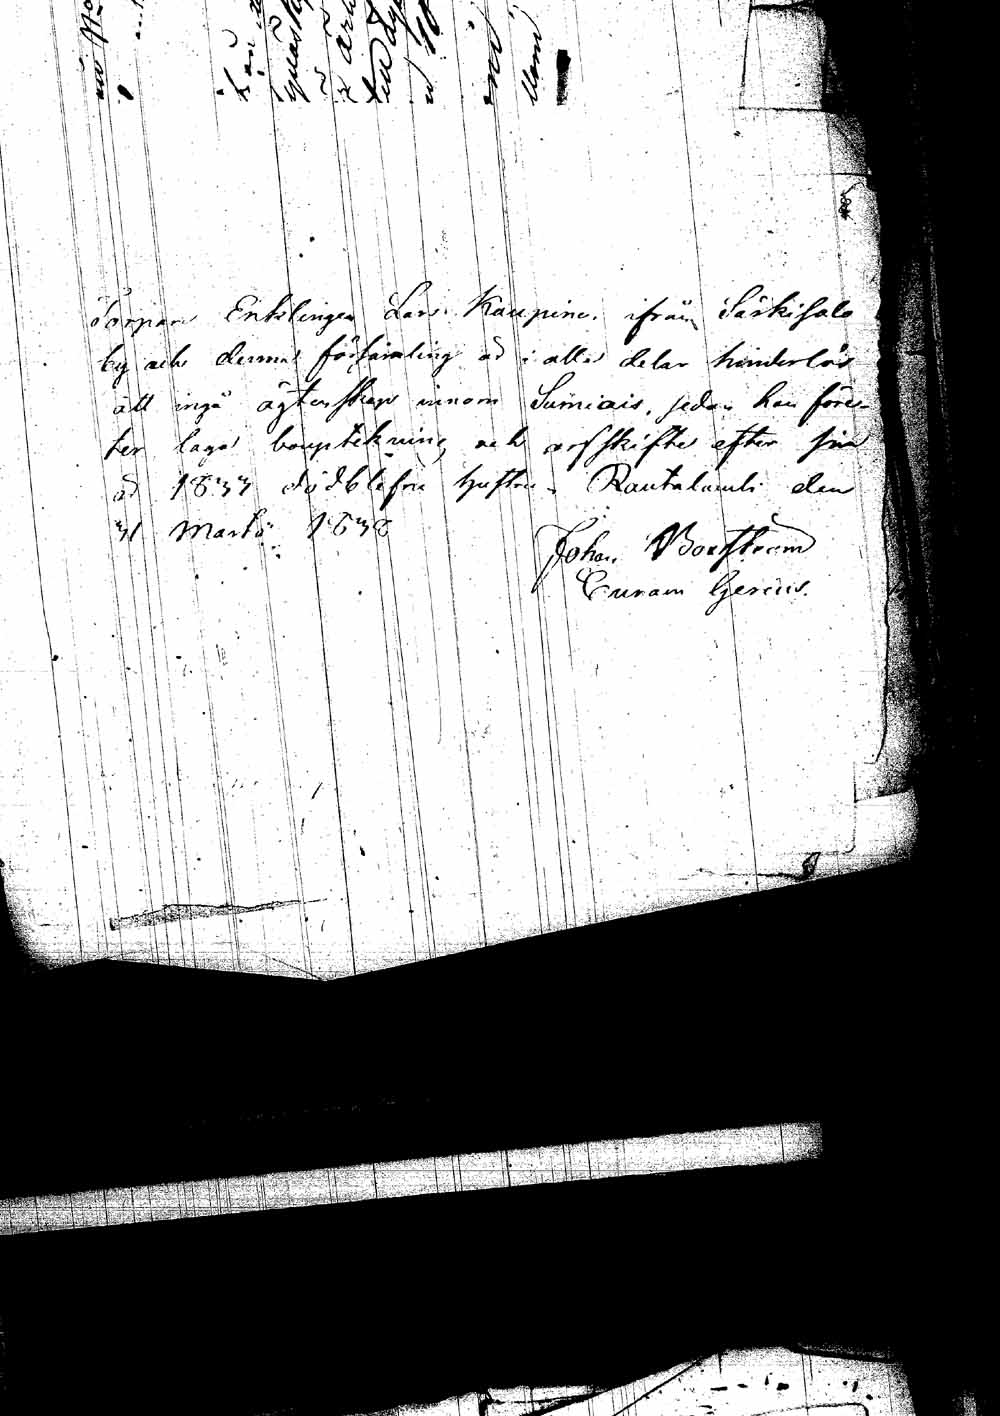 Torpare Enklingen Lars Kaupine. ifrån Särkisalo
by och denna församling är i alla delar hinderlös
att ingå ägtenskap innom Sumiais, sedan han före-
ter laga bouptekning och arfskifte efter sin
år 1833 dödblefne hustru. Rautalambi den
31 Martii 1838
Johan Boastroem
Curam Gerens.